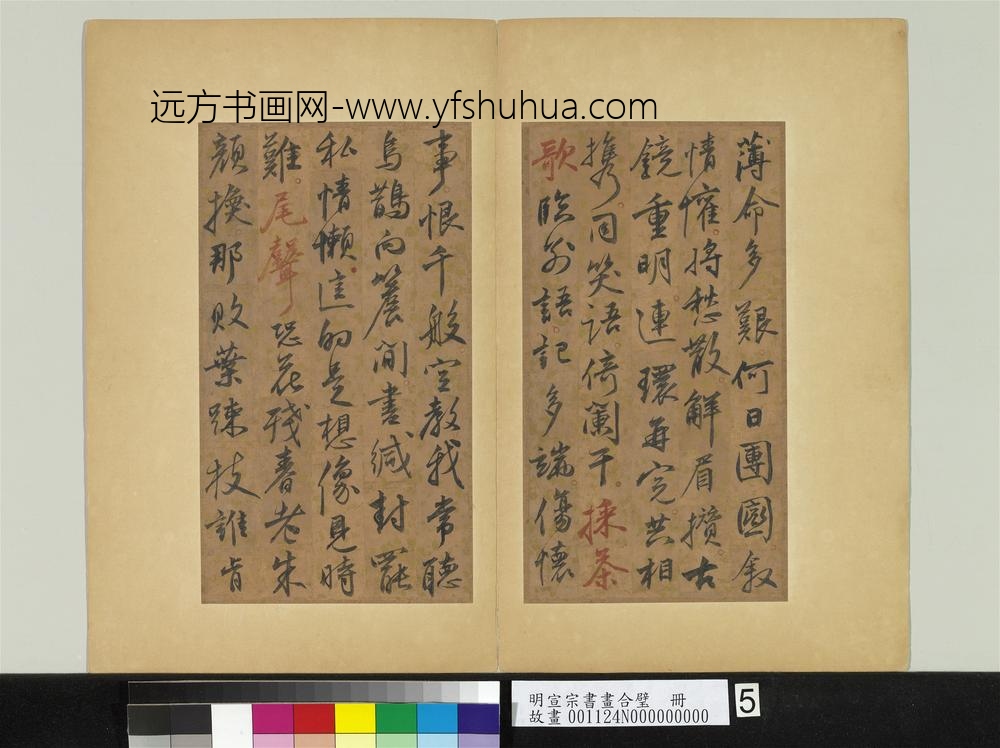 远方书画网-www.yfshuhua.com
薄命多艱何日團圞叙
情懽將愁散解眉攢古
鏡重明連環再完共相
携同笑语倚闌干採茶
歌臨別語記多端傷懷
事恨千般空教我常聽
烏鵲向簷間書緘封罷
私情懶這的是想像見時
難尾聲恐花殘春老朱
顔換那敗葉踈枝誰肯
明宣宗書畫合璧 冊
故畫 001124N000000000
5